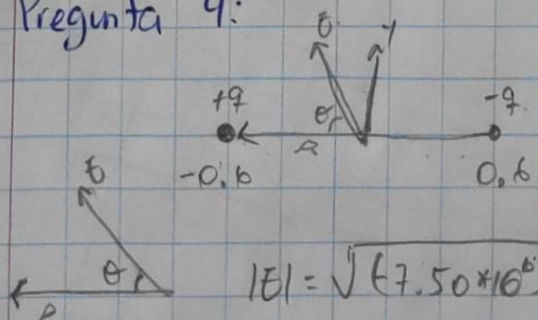 Pregunta 4:
E y
+q θ -q
-0.6 0.6
E
θ
|E| = √(-7.50*10⁶
P